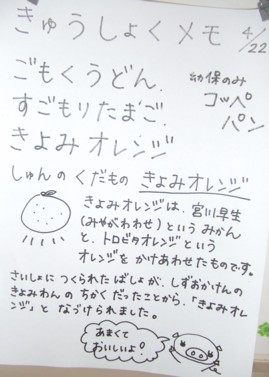 きゅうしょくメモ 4/22
ごもくうどん.
すごもりたまご.
きよみオレンジ
幼保のみ
コッペ
パン
しゅんのくだもの きよみオレンジ
きよみオレンジは、宮川早生
(みやがわわせ)という みかん
と、トロビタオレンジという
オレンジを かけあわせたものです。
さいしょに つくられたばしょが、しずおかけんの
きよみわんの ちかくだったことから、「きよみオレ
ンジ」と なづけられました。
あまくて
おいしいよ!